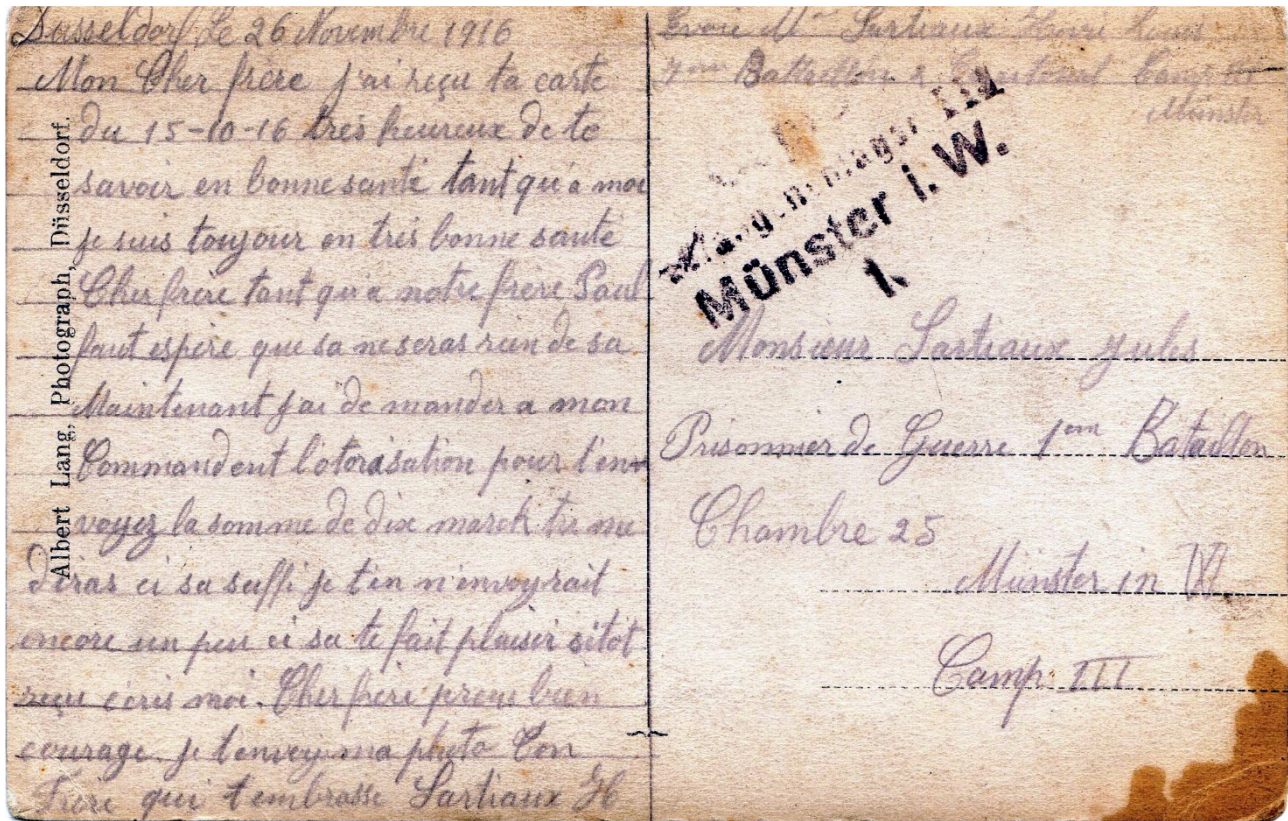 Dusseldorf Le 26 Novembre 1916
Mon Cher frère j'ai reçu ta carte
du 15-10-16 tres heureux de te
savoir en bonne santé tant qu'a moi
je suis toujour en tres bonne santé
Cher frère tant qu'a notre frère Paul
faut espere que sa ne seras rien de sa
Maintenant j'ai de mander a mon
Commandent l'otorisation pour t'en
voyez la somme de dix marck tu me
diras ci sa suffi je t'en n'envoyrait
encore un peu ci sa te fait plaisir sitot
reçu écris moi. Cher frère prens bien
courage. je t'envoy ma photo Ton
Frère qui t'embrasse Sartiaux H
Albert Lang, Photograph, Düsseldorf.
Sartiaux Henri Louis
Bataillon Camp
Münster
Münster i. W.
1.
Monsieur Sartiaux jules
Prisonnier de Guerre 1em Bataillon
Chambre 25
Münster in W
Camp III